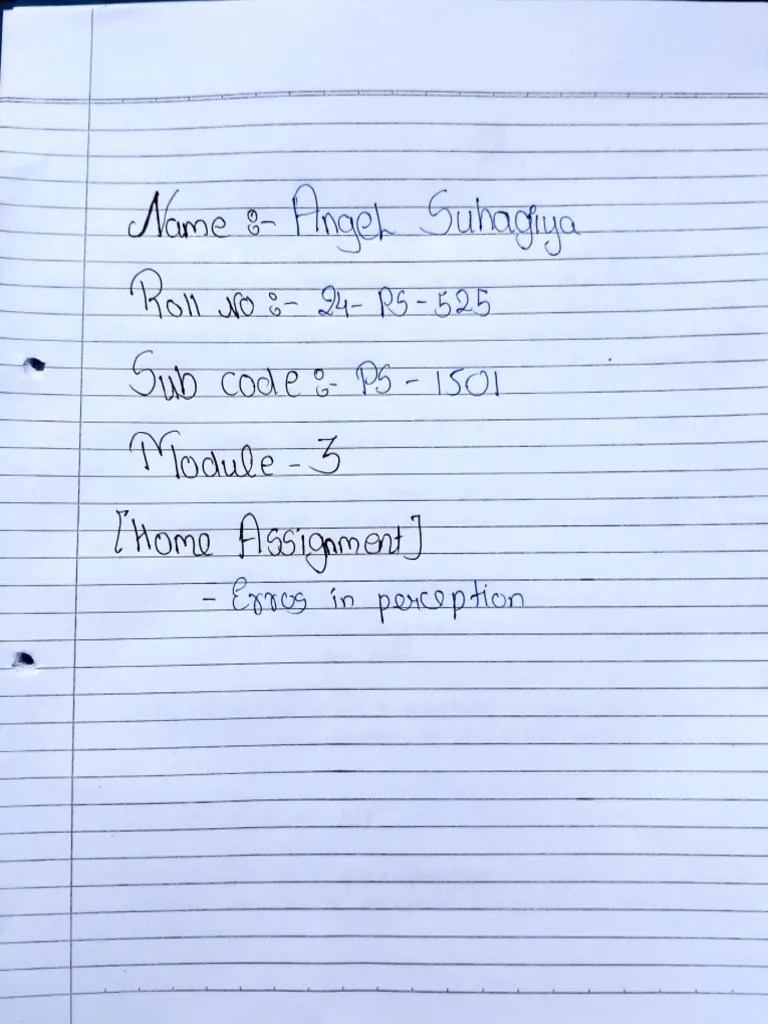 Name :- Angel Suhagiya
Roll no :- 24-PS-525
Sub code :- PS-1501
Module - 3
[Home Assignment]
- Erros in perception